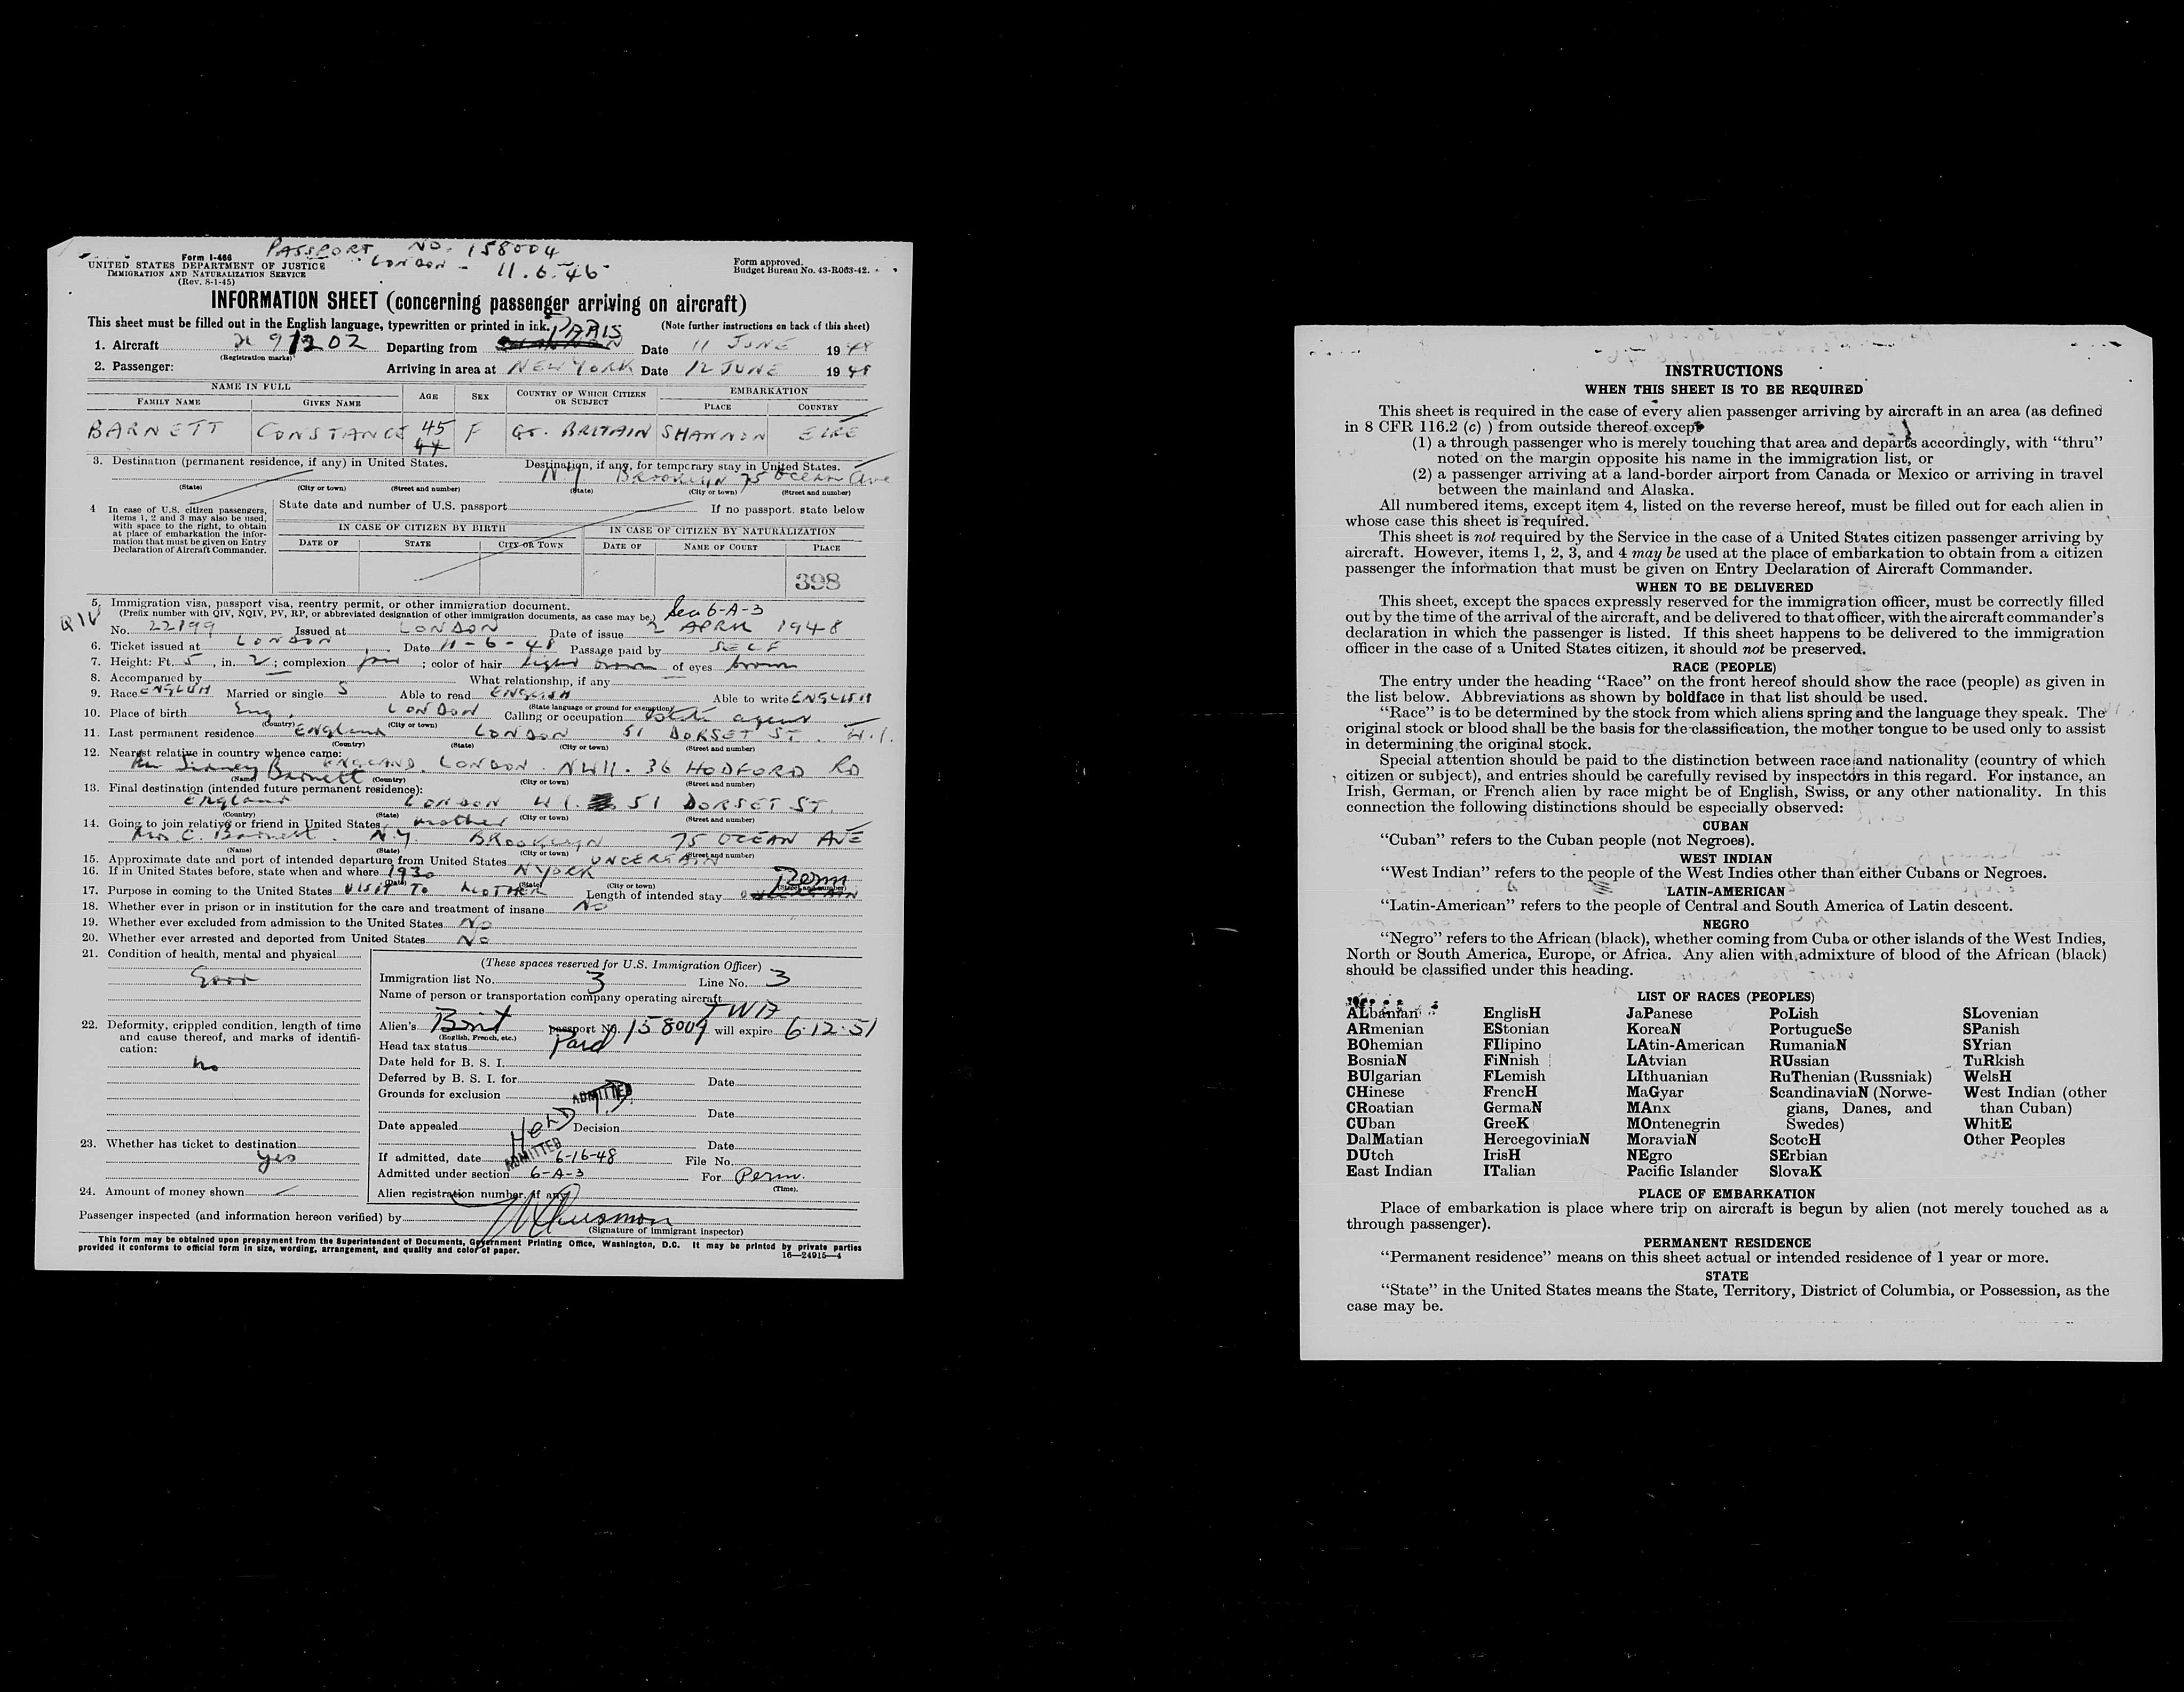 PASSPORT NO. 158004
LONDON - 11.6.46
Form I-466
UNITED STATES DEPARTMENT OF JUSTICE
IMMIGRATION AND NATURALIZATION SERVICE
(Rev. 8-1-45)
Form approved.
Budget Bureau No. 43-R063-42.
INFORMATION SHEET (concerning passenger arriving on aircraft)
This sheet must be filled out in the English language, typewritten or printed in ink. (Note further instructions on back of this sheet)
1. Aircraft 91202 Departing from PARIS Date 11 JUNE 1948
(Registration marks)
2. Passenger: Arriving in area at NEW YORK Date 12 JUNE 1948
NAME IN FULL AGE SEX COUNTRY OF WHICH CITIZEN OR SUBJECT EMBARKATION
FAMILY NAME GIVEN NAME PLACE COUNTRY
BARNETT CONSTANCE 45 F GT. BRITAIN SHANNON EIRE
44
3. Destination (permanent residence, if any) in United States. Destination, if any, for temporary stay in United States.
N.Y. BROOKLYN 75 Ocean Ave
(State) (City or town) (Street and number) (State) (City or town) (Street and number)
4 In case of U.S. citizen passengers, items 1, 2 and 3 may also be used, with space to the right, to obtain at place of embarkation the information that must be given on Entry Declaration of Aircraft Commander.
State date and number of U.S. passport If no passport, state below
IN CASE OF CITIZEN BY BIRTH IN CASE OF CITIZEN BY NATURALIZATION
DATE OF STATE CITY OR TOWN DATE OF NAME OF COURT PLACE
398
5. Immigration visa, passport visa, reentry permit, or other immigration document.
(Prefix number with QIV, NQIV, PV, RP, or abbreviated designation of other immigration documents, as case may be.) Sec 6-A-3
QIV No. 22199 Issued at LONDON Date of issue 2 APRIL 1948
6. Ticket issued at LONDON Date 11-6-48 Passage paid by SELF
7. Height: Ft. 5, in. 2; complexion fair; color of hair light brown of eyes brown
8. Accompanied by What relationship, if any
9. Race ENGLISH Married or single S Able to read ENGLISH Able to write ENGLISH
(State language or ground for exemption)
10. Place of birth Eng. LONDON Calling or occupation estate agent
(Country) (City or town)
11. Last permanent residence England LONDON 51 DORSET ST. W.1.
(Country) (State) (City or town) (Street and number)
12. Nearest relative in country whence came:
Sidney Barnett ENGLAND. LONDON. NW11. 36 HODFORD RD
(Name) (Country) (City or town) (Street and number)
13. Final destination (intended future permanent residence):
England LONDON W1. 51 DORSET ST.
(Country) (State) (City or town) (Street and number)
14. Going to join relative or friend in United States mother
Mrs C. Barnett. N.Y. BROOKLYN 75 OCEAN AVE
(Name) (State) (City or town) (Street and number)
15. Approximate date and port of intended departure from United States UNCERTAIN
16. If in United States before, state when and where 1930 N YORK
(Date) (State) (City or town) (Street and number)
17. Purpose in coming to the United States VISIT TO MOTHER Length of intended stay Perm
18. Whether ever in prison or in institution for the care and treatment of insane NO
19. Whether ever excluded from admission to the United States NO
20. Whether ever arrested and deported from United States NO
21. Condition of health, mental and physical
Good
22. Deformity, crippled condition, length of time and cause thereof, and marks of identification:
No
23. Whether has ticket to destination
yes
24. Amount of money shown
(These spaces reserved for U.S. Immigration Officer)
Immigration list No. 3 Line No. 3
Name of person or transportation company operating aircraft
TWA
Alien's Brit passport No. 158004 will expire 6-12-51
(English, French, etc.)
Head tax status Paid
Date held for B. S. I.
Deferred by B. S. I. for Date
Grounds for exclusion ADMITTED
Date
HELD T.D.
Date appealed Decision
ADMITTED Date
If admitted, date 6-16-48 File No.
Admitted under section 6-A-3 For Perm.
(Time).
Alien registration number, if any
Passenger inspected (and information hereon verified) by
(Signature of immigrant inspector)
This form may be obtained upon prepayment from the Superintendent of Documents, Government Printing Office, Washington, D.C. It may be printed by private parties
provided it conforms to official form in size, wording, arrangement, and quality and color of paper. 16—24915—4
INSTRUCTIONS
WHEN THIS SHEET IS TO BE REQUIRED
This sheet is required in the case of every alien passenger arriving by aircraft in an area (as defined
in 8 CFR 116.2 (c) ) from outside thereof except
(1) a through passenger who is merely touching that area and departs accordingly, with "thru"
noted on the margin opposite his name in the immigration list, or
(2) a passenger arriving at a land-border airport from Canada or Mexico or arriving in travel
between the mainland and Alaska.
All numbered items, except item 4, listed on the reverse hereof, must be filled out for each alien in
whose case this sheet is required.
This sheet is not required by the Service in the case of a United States citizen passenger arriving by
aircraft. However, items 1, 2, 3, and 4 may be used at the place of embarkation to obtain from a citizen
passenger the information that must be given on Entry Declaration of Aircraft Commander.
WHEN TO BE DELIVERED
This sheet, except the spaces expressly reserved for the immigration officer, must be correctly filled
out by the time of the arrival of the aircraft, and be delivered to that officer, with the aircraft commander's
declaration in which the passenger is listed. If this sheet happens to be delivered to the immigration
officer in the case of a United States citizen, it should not be preserved.
RACE (PEOPLE)
The entry under the heading "Race" on the front hereof should show the race (people) as given in
the list below. Abbreviations as shown by boldface in that list should be used.
"Race" is to be determined by the stock from which aliens spring and the language they speak. The
original stock or blood shall be the basis for the classification, the mother tongue to be used only to assist
in determining the original stock.
Special attention should be paid to the distinction between race and nationality (country of which
citizen or subject), and entries should be carefully revised by inspectors in this regard. For instance, an
Irish, German, or French alien by race might be of English, Swiss, or any other nationality. In this
connection the following distinctions should be especially observed:
CUBAN
"Cuban" refers to the Cuban people (not Negroes).
WEST INDIAN
"West Indian" refers to the people of the West Indies other than either Cubans or Negroes.
LATIN-AMERICAN
"Latin-American" refers to the people of Central and South America of Latin descent.
NEGRO
"Negro" refers to the African (black), whether coming from Cuba or other islands of the West Indies,
North or South America, Europe, or Africa. Any alien with admixture of blood of the African (black)
should be classified under this heading.
LIST OF RACES (PEOPLES)
ALbanian EnglisH JaPanese PoLish SLovenian
ARmenian EStonian KoreaN PortugueSe SPanish
BOhemian FIlipino LAtin-American RumaniaN SYrian
BosniaN FiNnish LAtvian RUssian TuRkish
BUlgarian FLemish LIthuanian RuThenian (Russniak) WelsH
CHinese FrencH MaGyar ScandinaviaN (Norwe- West Indian (other
CRoatian GermaN MAnx gians, Danes, and than Cuban)
CUban GreeK MOntenegrin Swedes) WhitE
DalMatian HercegoviniaN MoraviaN ScotcH Other Peoples
DUtch IrisH NEgro SErbian
East Indian ITalian Pacific Islander SlovaK
PLACE OF EMBARKATION
Place of embarkation is place where trip on aircraft is begun by alien (not merely touched as a
through passenger).
PERMANENT RESIDENCE
"Permanent residence" means on this sheet actual or intended residence of 1 year or more.
STATE
"State" in the United States means the State, Territory, District of Columbia, or Possession, as the
case may be.